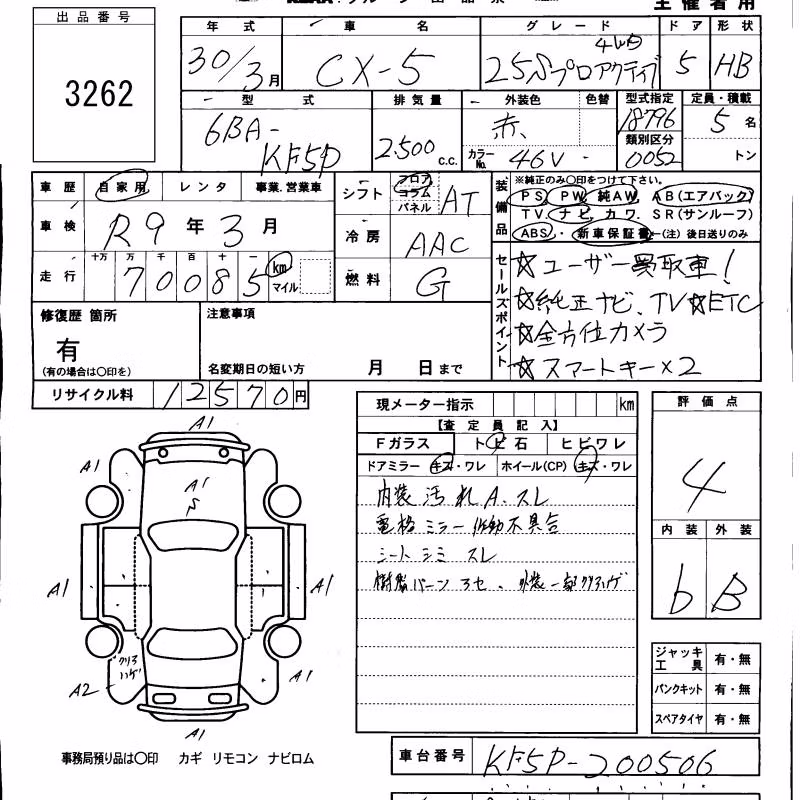 主催者用
出品番号
3262
年式 車名 グレード ドア 形状
30/3月 CX-5 25Sプロアクティブ 4WD 5 HB
型式 排気量 外装色 色替 型式指定 定員・積載
6BA-KF5P 2.500c.c. 赤 カラーNo. 46V 18796 5名
類別区分 0052 トン
車歴 自家用 レンタ 事業.営業車
車検 R9年3月
走行 十万 万 千 百 十 一
70085 km マイル
シフト フロア コラム パネル AT
冷房 AAC
燃料 G
装備品 ※純正のみ〇印をつけて下さい。
PS PW 純AW AB(エアバック)
TV. ナビ. カワ. SR(サンルーフ)
ABS・新車保証書←(注)後日送りのみ
セールスポイント
☆ユーザー買取車!
☆純正ナビ、TV☆ETC
☆全方位カメラ
☆スマートキー×2
修復歴 箇所
有
(有の場合は〇印を)
注意事項
名変期日の短い方 月 日まで
リサイクル料 12570円
現メーター指示 km
【査定員記入】
Fガラス トビ石 ヒビワレ
ドアミラー キズ・ワレ ホイール(CP) キズ・ワレ
内装汚れA.スレ
電格ミラー作動不具合
シートシミ スレ
評価点
4
内装 外装
b B
ジャッキ工具 有・無
パンクキット 有・無
スペアタイヤ 有・無
A1
A1 A1
A1
S
A1 A1
クリアハゲ
A2 A1
A1
事務局預り品は〇印 カギ リモコン ナビロム
車台番号 KF5P-200506